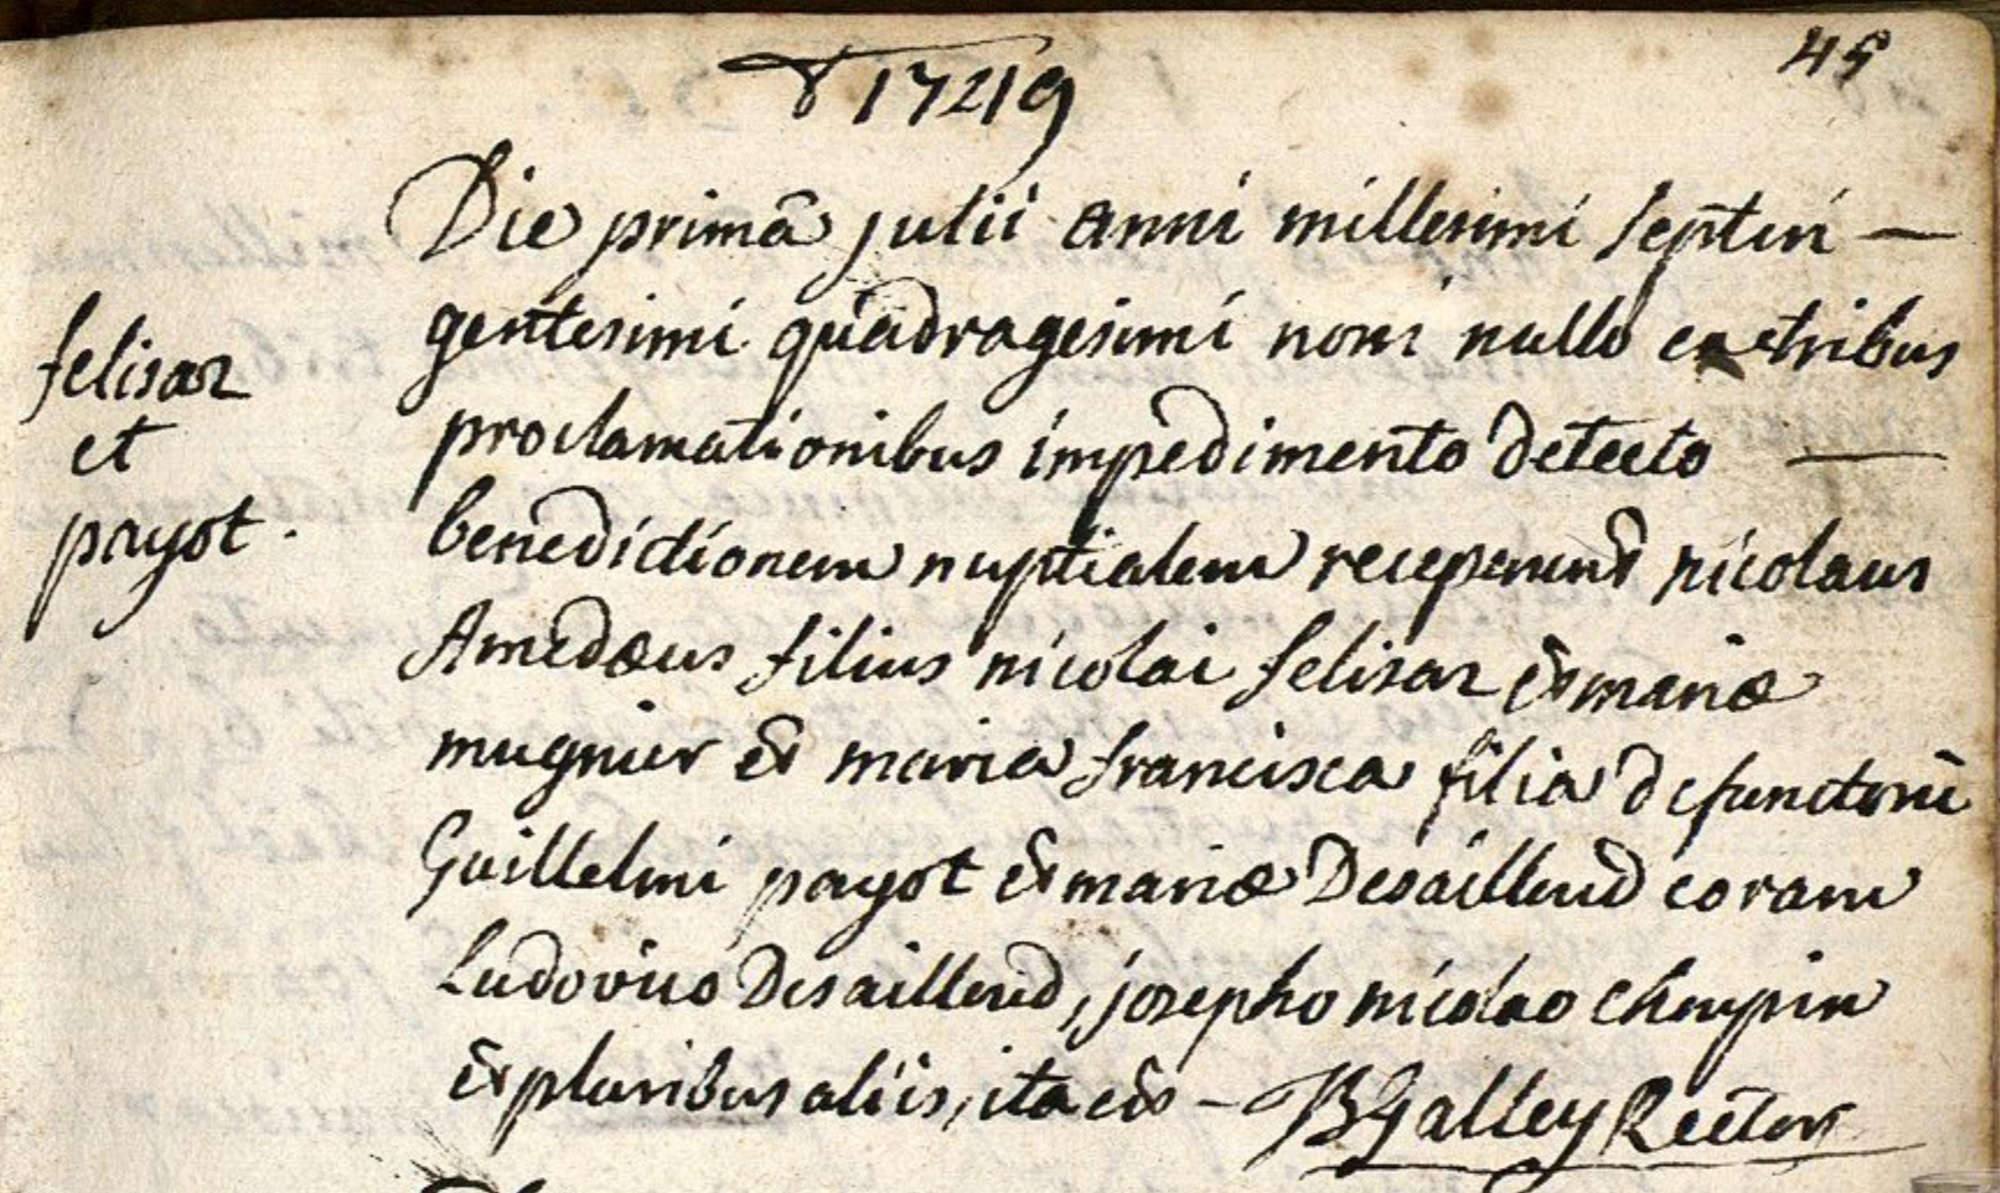 45
1749
Die primâ julii anni millesimi septin —
gentesimi quadragesimi noni nullo ex tribus
proclamationibus impedimento detecto —
felisaz
et
payot.
benedictionem nuptialem receperund nicolaus
Amedæus filius nicolai felisaz & mariæ
mugnier & maria francisca filia defunctorū
Guillelmi payot & mariæ Desailloud coram
Ludovico Desailloud, josepho nicolao Charpin
& pluribus aliis, ita est - B Galley Rector